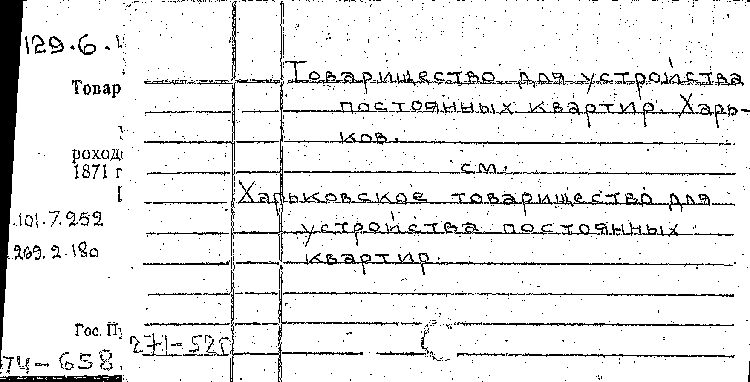 129.6.
Товарищество для устройства
Товар
постоянных квартир. Харь-
ков.
роходи
см.
1871 г
Харьковское товарищество для
101.7.252
устройства постоянных
269.2.180
квартир.
Гос. Пу
271-520
74-658.